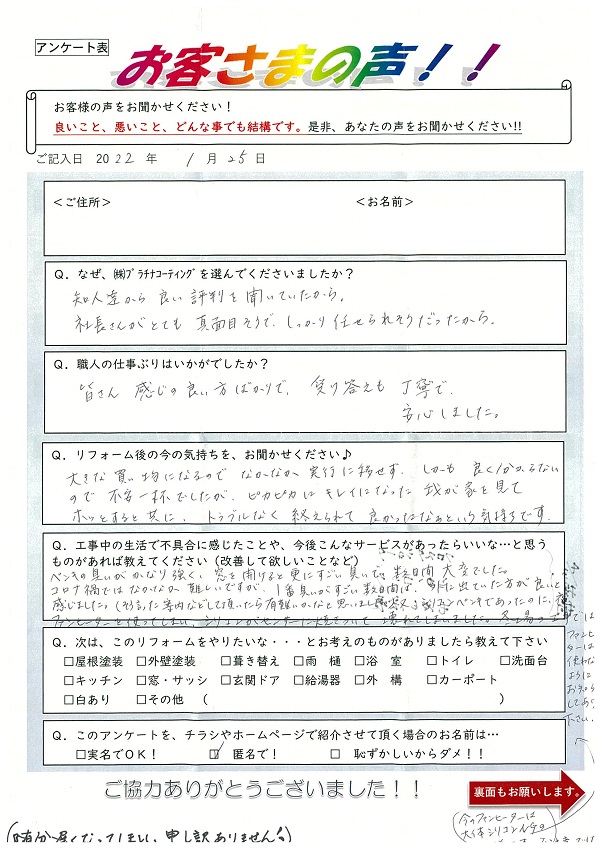 アンケート表
お客さまの声！！
お客様の声をお聞かせください！
良いこと、悪いこと、どんな事でも結構です。是非、あなたの声をお聞かせください!!
ご記入日 2022 年 1 月 25 日
＜ご住所＞ ＜お名前＞
Q．なぜ、㈱ﾌﾟﾗﾁﾅｺｰﾃｨﾝｸﾞを選んでくださいましたか？
知人達から良い評判を聞いていたから。
社長さんがとても真面目そうで、しっかり任せられそうだったから。
Q．職人の仕事ぶりはいかがでしたか？
皆さん 感じの良い方ばかりで、受け答えも 丁寧で、
安心しました。
Q．リフォーム後の今の気持ちを、お聞かせください♪
大きな買い物になるので なかなか 実行に移せず、しかも 良く分からない
ので 不安一杯でしたが、ピカピカに キレイになった 我が家を見て
ホッとすると共に、トラブルなく 終えられて 良かったなあという気持ちです。
Q．工事中の生活で不具合に感じたことや、今後こんなサービスがあったらいいな…と思う
ものがあれば教えてください（改善して欲しいことなど）
ペンキの臭いがかなり強く、窓を開けると更にすごい臭いで、数日間 大変でした。
コロナ禍では なかなか 難しいですが、1番臭いがすごい数日間は、 に出ていた方が良いと
感じました。(そういった案内などして頂いたら有難いかなと思いました
ファンヒーターを使ってしまい、シリコンがセンサーに 壊れてしまいました。
では
ファンヒーターは
使わない
ように
お知らせ
してあげて
下さい。
Q．次は、このリフォームをやりたいな・・・とお考えのものがありましたら教えて下さい
□屋根塗装 □外壁塗装 □葺き替え □雨　樋 □浴　室 □トイレ □洗面台
□キッチン □窓・サッシ □玄関ドア □給湯器 □外　構 □カーポート
□白あり □その他 （ ）
Q．このアンケートを、チラシやホームページで紹介させて頂く場合のお名前は…
□実名でOK！ ☑匿名で！ □ 恥ずかしいからダメ！！
ご協力ありがとうございました！！
裏面もお願いします。
今のファンヒーターは
(随分遅くなってしまい、申し訳ありません!)